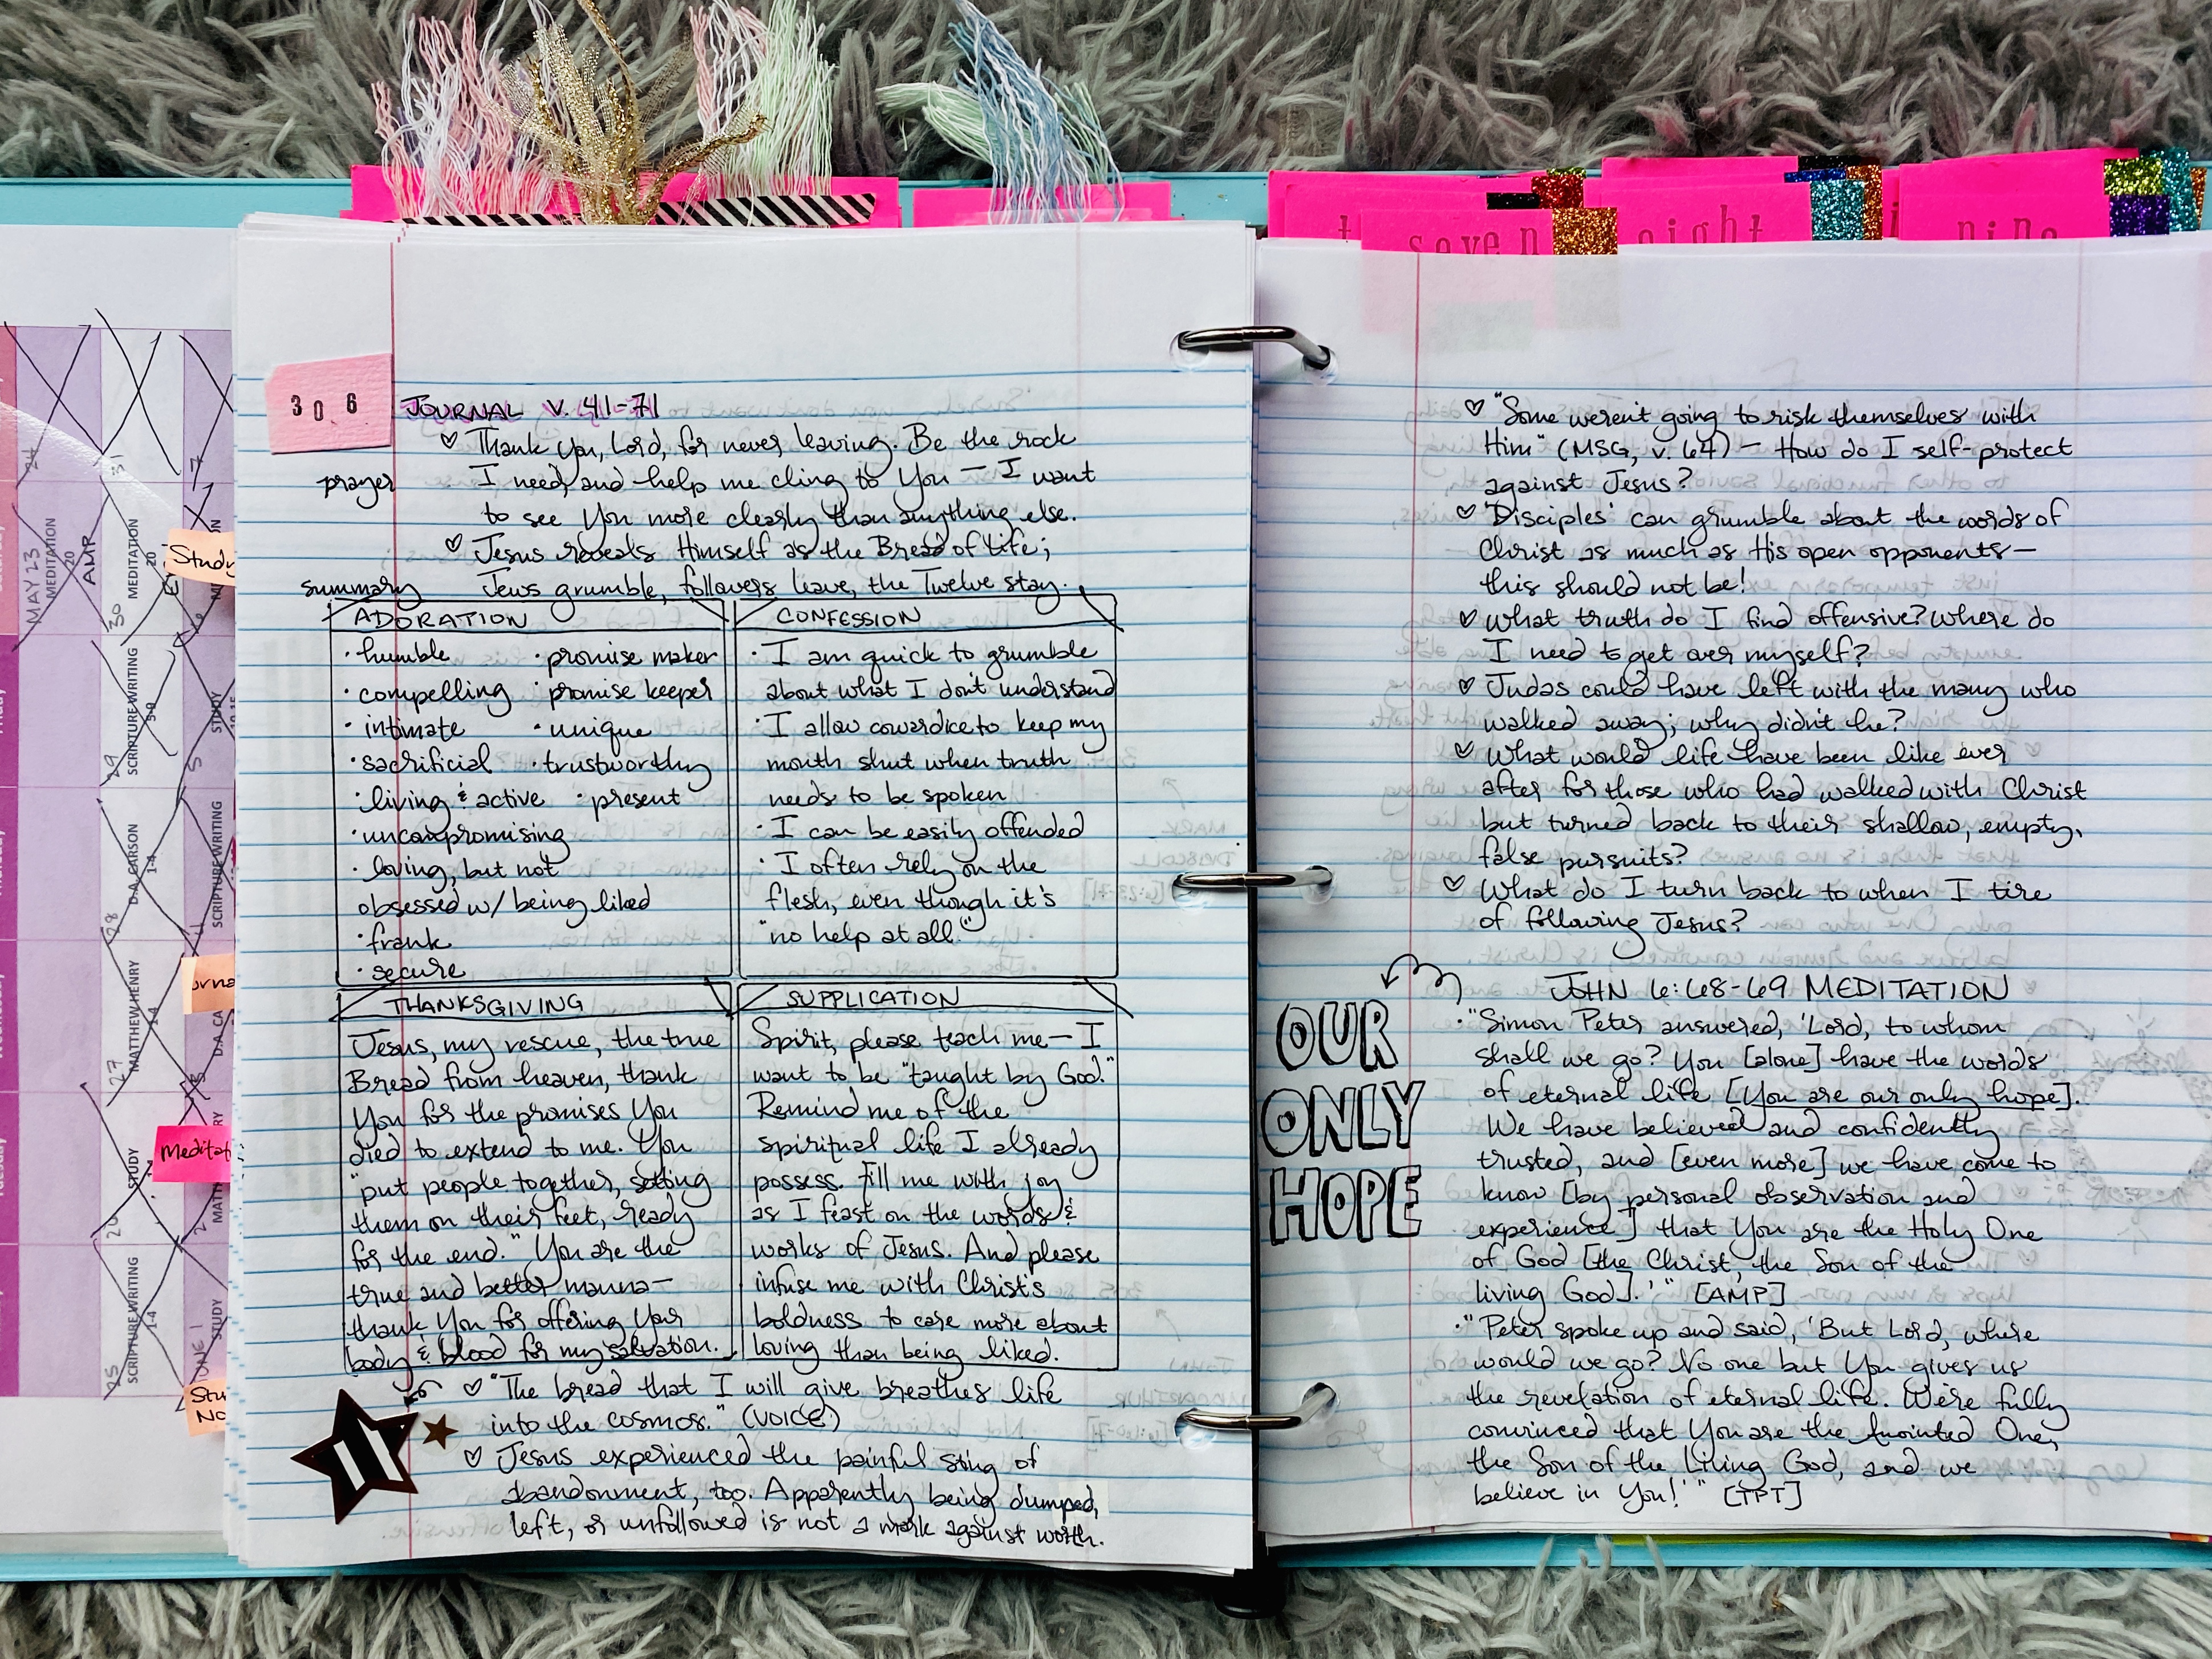 seven
eight
nine
306
JOURNAL v. 41-71
♡ Thank You, Lord, for never leaving. Be the rock
prayer
I need, and help me cling to You — I want
to see You more clearly than anything else.
♡ Jesus reveals Himself as the Bread of Life;
summary
Jews grumble, followers leave, the Twelve stay.
ADORATION
· humble · promise maker
· compelling · promise keeper
· intimate · unique
· sacrificial · trustworthy
· living & active · present
· uncompromising
· loving, but not
obsessed w/ being liked
· frank
· secure
CONFESSION
· I am quick to grumble
about what I don't understand
· I allow cowardice to keep my
mouth shut when truth
needs to be spoken
· I can be easily offended
· I often rely on the
flesh, even though it's
"no help at all."
THANKSGIVING
Jesus, my rescue, the true
Bread from heaven, thank
You for the promises You
died to extend to me. You
"put people together, setting
them on their feet, ready
for the end." You are the
true and better manna—
thank You for offering Your
body & blood for my salvation.
SUPPLICATION
Spirit, please teach me— I
want to be "taught by God."
Remind me of the
spiritual life I already
possess. Fill me with joy
as I feast on the words &
works of Jesus. And please
infuse me with Christ's
boldness to care more about
loving than being liked.
♡ "The bread that I will give breathes life
into the cosmos." (VOICE)
♡ Jesus experienced the painful sting of
abandonment, too. Apparently being dumped,
left, or unfollowed is not a mark against worth.
♡ "Some weren't going to risk themselves with
Him" (MSG, v. 64) — How do I self-protect
against Jesus?
♡ 'Disciples' can grumble about the words of
Christ as much as His open opponents—
this should not be!
♡ What truth do I find offensive? Where do
I need to get over myself?
♡ Judas could have left with the many who
walked away; why didn't he?
♡ What would life have been like ever
after for those who had walked with Christ
but turned back to their shallow, empty,
false pursuits?
♡ What do I turn back to when I tire
of following Jesus?
OUR
ONLY
HOPE
JOHN 6:68-69 MEDITATION
· "Simon Peter answered, 'Lord, to whom
shall we go? You [alone] have the words
of eternal life [You are our only hope].
We have believed and confidently
trusted, and [even more] we have come to
know [by personal observation and
experience] that You are the Holy One
of God [the Christ, the Son of the
living God].'" [AMP]
· "Peter spoke up and said, 'But Lord, where
would we go? No one but You gives us
the revelation of eternal life. We're fully
convinced that You are the Anointed One,
the Son of the Living God, and we
believe in You!'" [TPT]
MAY 23
MEDITATION
20
AMP
MEDITATION
20
30
31
SCRIPTURE WRITING
5-9
29
D.A. CARSON
1-4
28
MATTHEW HENRY
1-4
27
STUDY
26
SCRIPTURE WRITING
1-4
25
STUDY
SCRIPTURE WRITING
D.A. CA
STUDY
JUNE 1
Study
Meditat
Stu
No